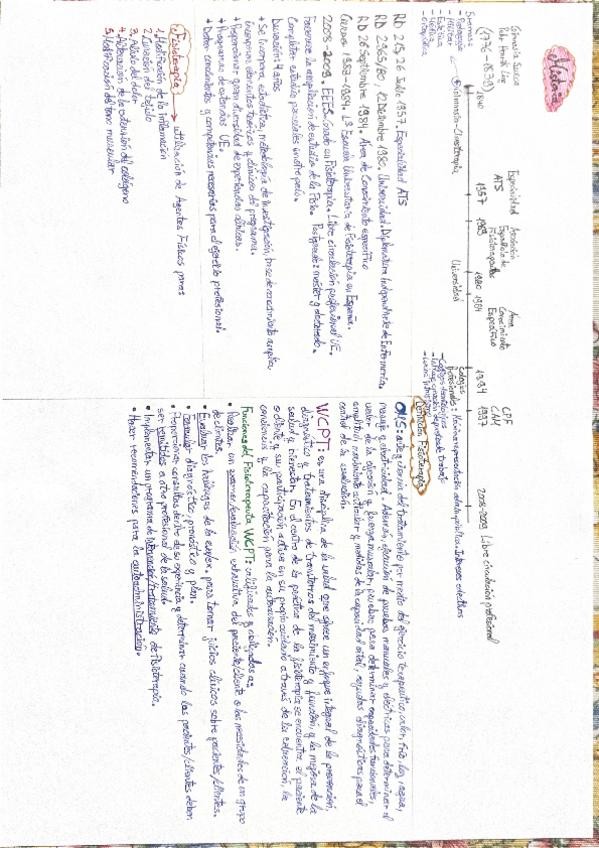 Historia
Gimnasia Sueca
Pehr Henrik Ling
(1776-1839)
Sistemas
- Pedagogía
- Militar
- Médica
- Estética
- Ortopédica
1840
Kinesiterapia
Especialidad
ATS
1957
Asociación
Española de
Fisioterapeutas
1969
Universidad
1980
1984
Área
Conocimiento
Específico
Colegios
Profesionales:
1997
CPF
CAM
1997
2008-2009
Libre circulación profesional
RD 2/5 26 Julio 1957. Especialidad ATS
RD 2965/80, 12 Diciembre 1980. Universidad. Diplomatura Independiente de Enfermería.
RD 26 Septiembre 1984. Área de Conocimiento específico
Curso: 1983-1984. 1ª Escuela Universitaria de Fisioterapia en España.
2008-2009. EEES. Grado en Fisioterapia. Libre circulación profesional UE.
Favorece la ampliación de estudios de la Fisio. Postgrado: máster y doctorado.
Completar estudios parciales en otro país.
Duración 4 años
+ Se incorpora estadística, metodología de investigación, base de conocimiento amplia,
+ Programas de estancias UE.
+ Dotar conocimientos y competencias necesarias para el ejercicio profesional.
Fisioterapia → utilización de Agentes Físicos para:
1. Modificación de la inflamación
2. Curación del tejido
3. Alivio del dolor
4. Alteración de la extensión del colágeno
5. Modificación del tono muscular
Definición Fisioterapia
OMS: arte y ciencia del tratamiento por medio del ejercicio terapéutico, calor, frío, luz, agua,
masaje y electricidad. Además, ejecución de pruebas manuales y eléctricas para determinar el
valor de la afección y fuerza muscular, pruebas para determinar capacidades funcionales,
amplitud, movimiento articular y medidas de la capacidad vital, ayudas diagnósticas para el
control de la evolución.
WCPT: es una disciplina de la salud que ofrece un enfoque integral de la prevención,
diagnóstico y tratamientos de trastornos del movimiento y función, y la mejora de la
salud y bienestar. En el centro de la práctica de la fisioterapia se encuentra el paciente
o cliente y su participación activa en su propio cuidado a través de la educación, la
conciencia y la capacitación para la autonomía.
Funciones del Fisioterapeuta WCPT: cualificados y obligados a:
• Realizar un examen/evaluación exhaustiva del paciente/cliente o las necesidades de un grupo
de clientes.
• Evaluar los hallazgos de la explor. para tomar juicios clínicos sobre pacientes/clientes.
• Formular diagnóstico, pronóstico y plan.
• Proporcionar consultas dentro de su experiencia y determinar cuando los pacientes/clientes deben
ser remitidos a otro profesional de la salud.
• Implementar un programa de intervención/tratamiento de fisioterapia.
• Hacer recomendaciones para la autoadministración.